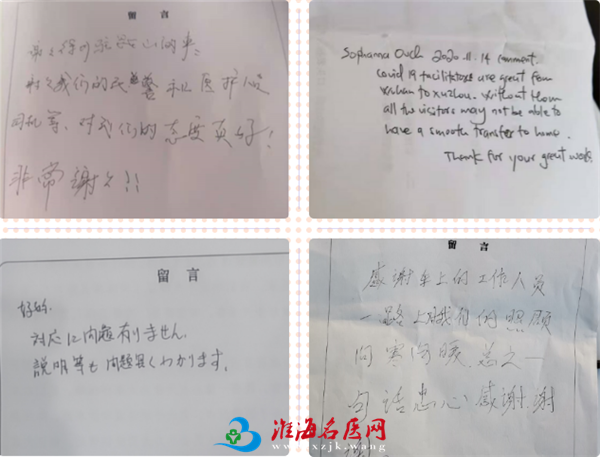 留 言
对我们的民警和医护人员
司机等,对我们的态度真好!
非常谢谢!!
Sophanna Ouch 2020.11.14 comment.
Covid 19 facilitators are great from
Wuhan to Xuzhou. Without them
all the visitors may not be able to
have a smooth transfer to home.
Thank for your great work.
留 言
好的.
対応に問題有りません.
説明等も問題無くわかります.
留 言
感谢车上的工作人员
一路上对我们的照顾
问寒问暖.总之一
句话忠心感谢.谢
淮海名医网
xzjk.wang